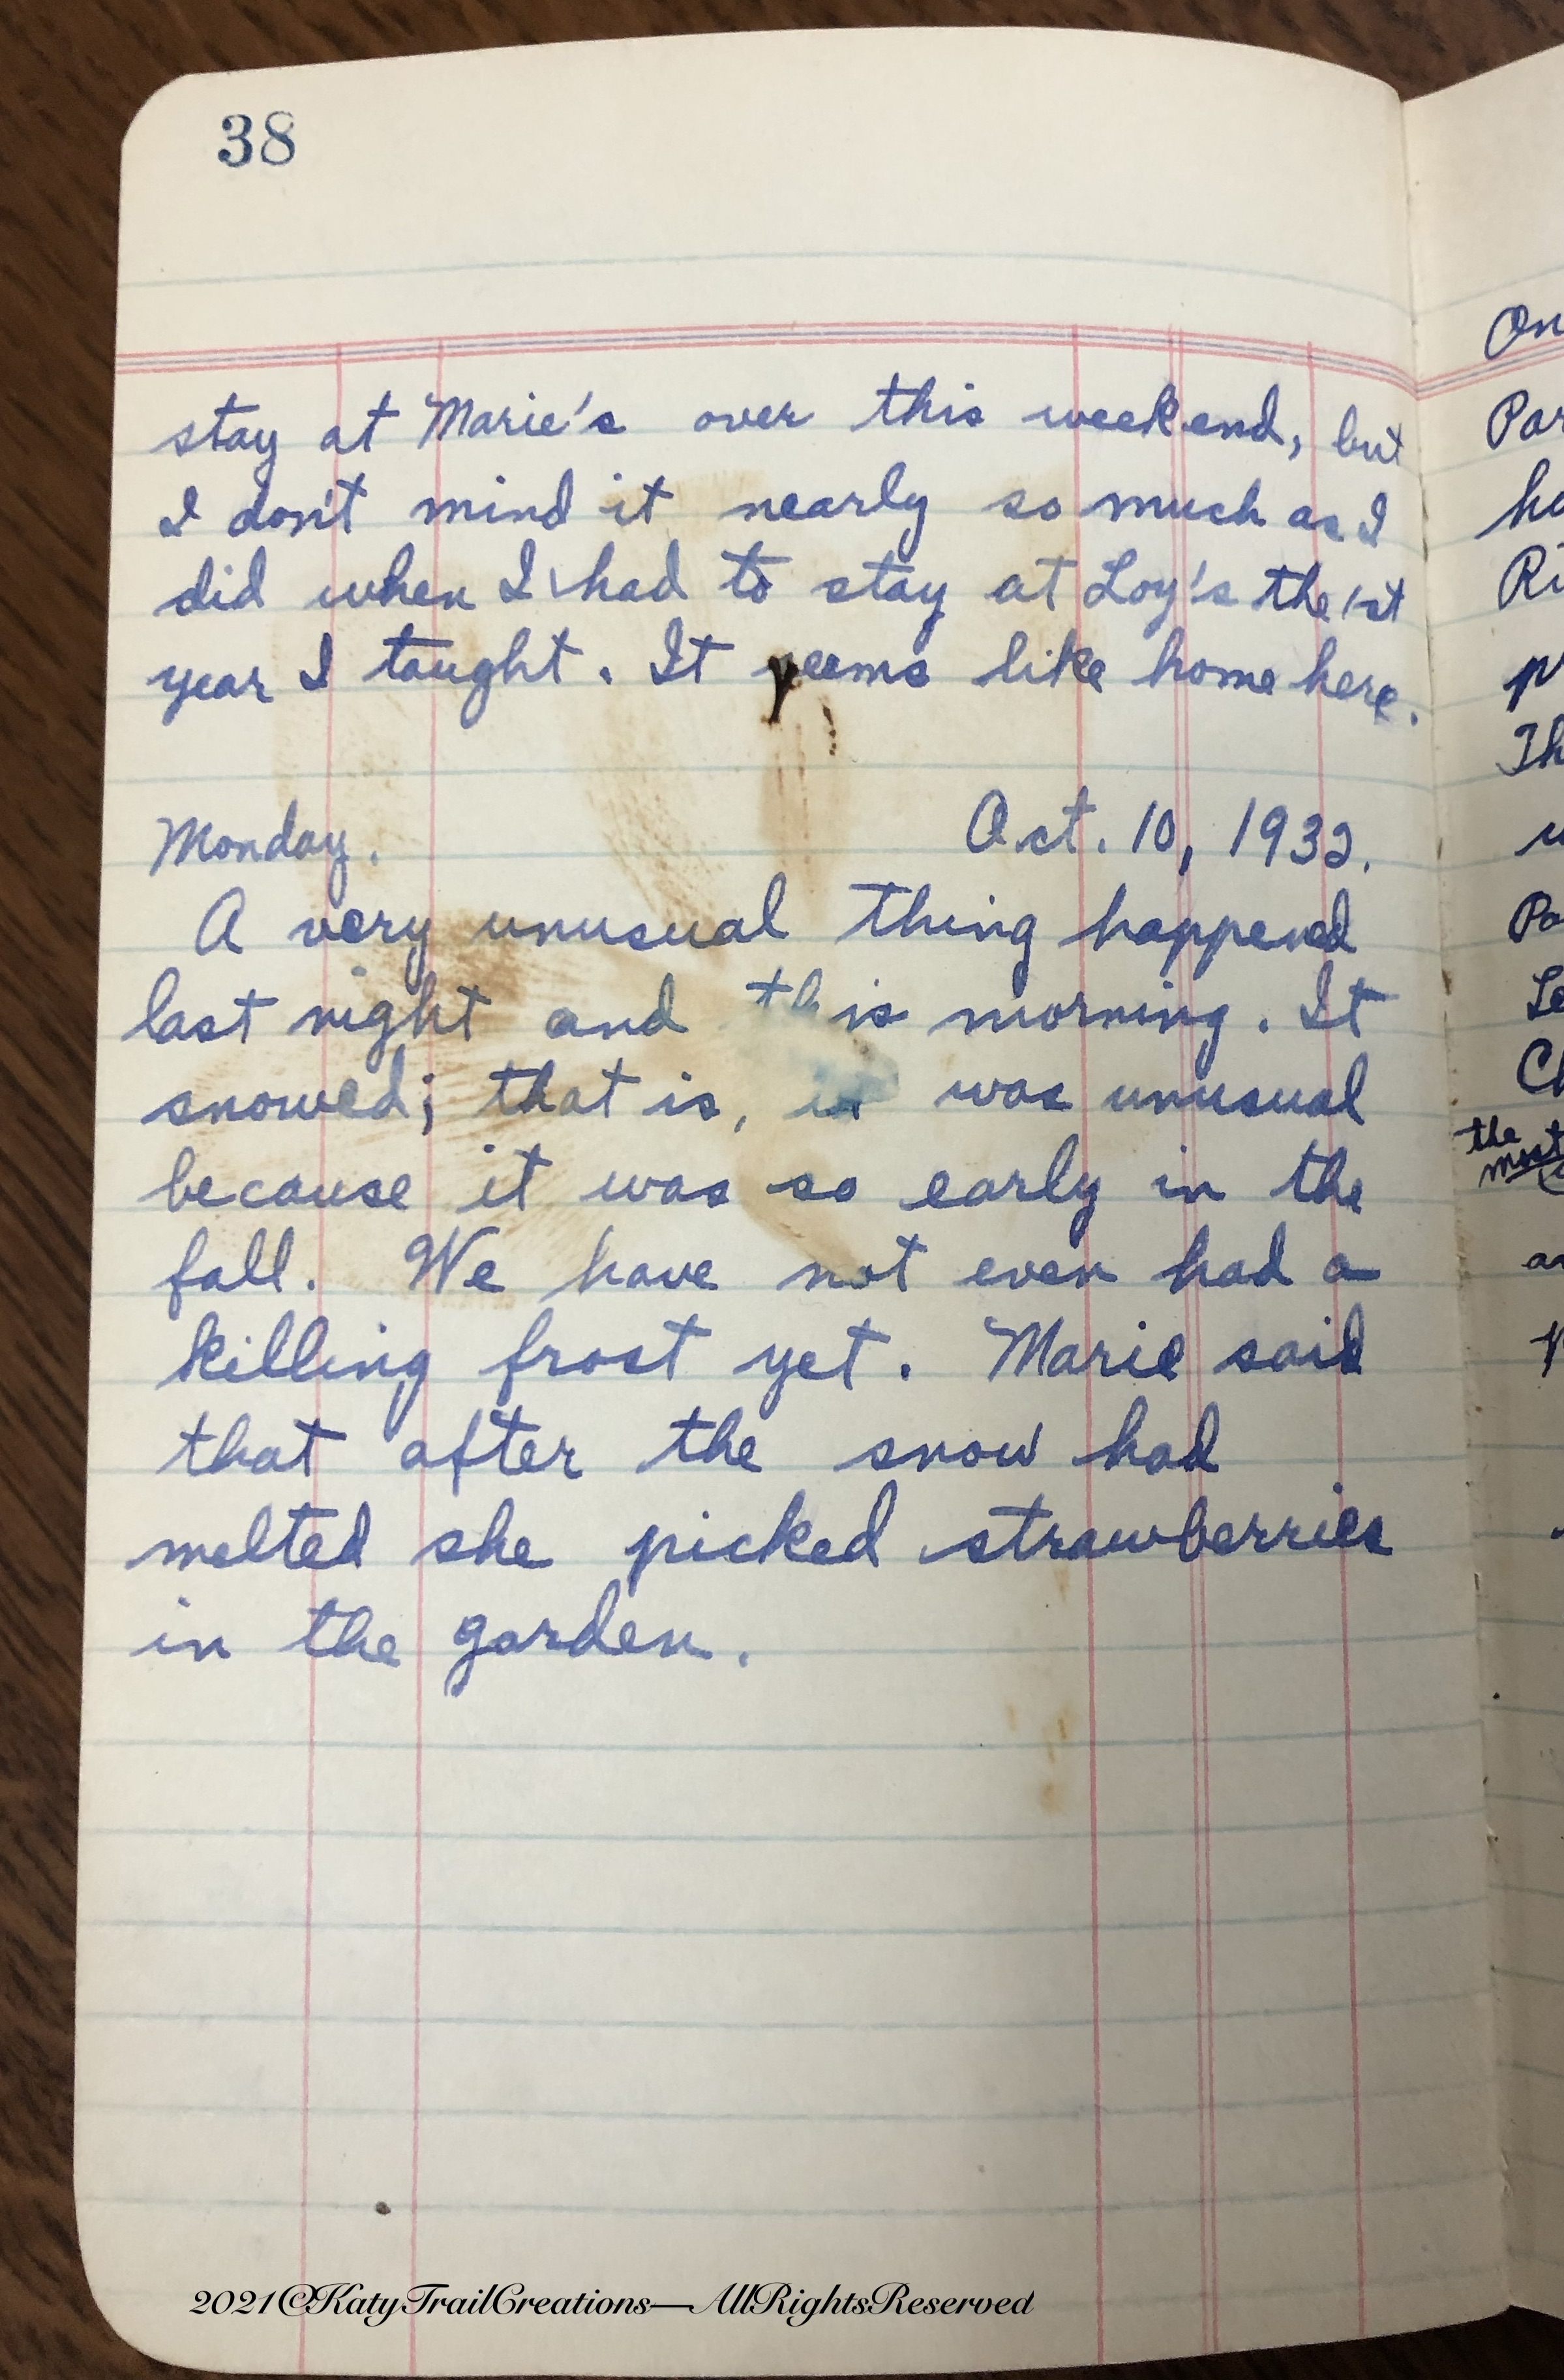 38
stay at Marie's over this weekend, but
I don't mind it nearly so much as I
did when I had to stay at Loy's the 1st
year I taught. It seems like home here.
Monday. Oct. 10, 1932.
A very unusual thing happened
last night and this morning. It
snowed; that is, it was unusual
because it was so early in the
fall. We have not even had a
killing frost yet. Marie said
that after the snow had
melted she picked strawberries
in the garden.
On
Par
Th
the
most
2021©KatyTrailCreations—AllRightsReserved